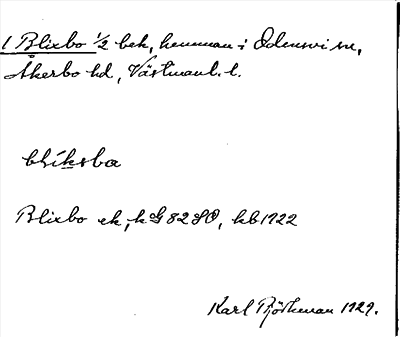 1 Blixbo 1/2 bek, hemman i Odensvi sn,
Åkerbo hd, Västmanl. l.
blíksba
Blixbo ek, k G8280, kb 1722
Karl Björkman 1929.